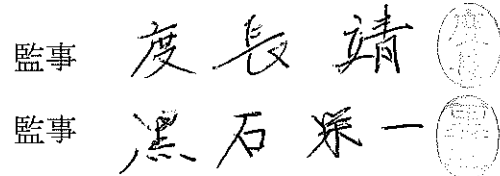 監事 度長靖
監事 黒石栄一